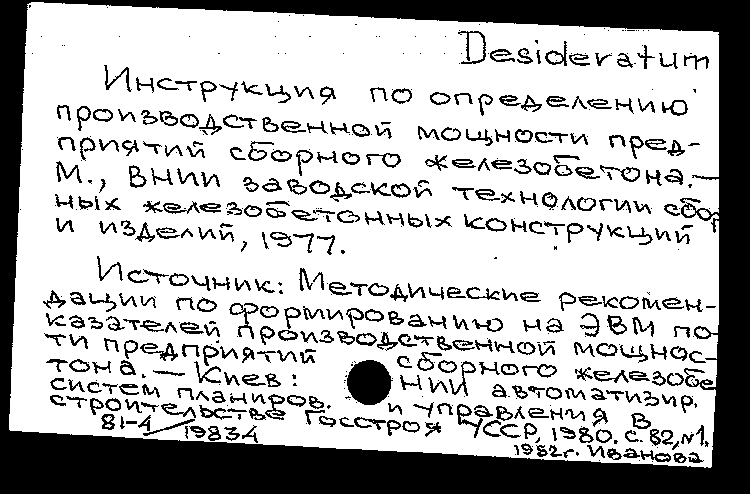 Desideratum
Инструкция по определению
производственной мощности пред-
приятий сборного железобетона.—
М., ВНИИ заводской технологии сбор
ных железобетонных конструкций
и изделий, 1977.
Источник: Методические рекомен-
дации по формированию на ЭВМ по-
казателей производственной мощнос-
ти предприятий сборного железобе
тона.— Киев: НИИ автоматизир.
систем планиров. и управления в
строительстве Госстроя УССР, 1980. с. 82, №1.
81-4/19834
1982г. Иванова